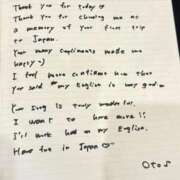 Thank you for today ☺
Thank you for choosing me as
a memory of your first trip
to Japan.
Your many compliments made me
happy :)
I feel more confident now than
You said "my English is very good"
Your song is truly wonderful.
I want to hear more!!
I'll work hard on my English.
Have fun in Japan ♡